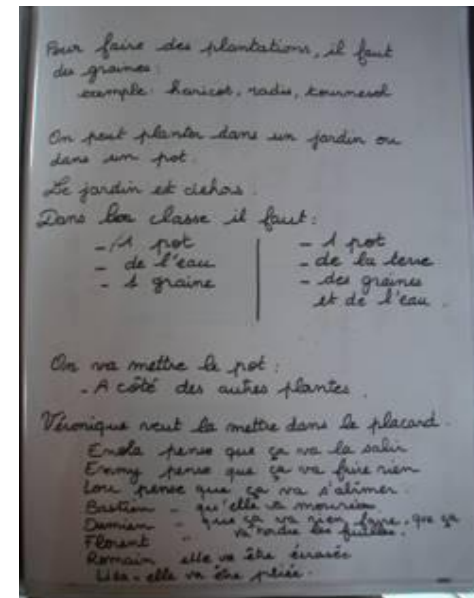 Pour faire des plantations, il faut
des graines :
exemple : haricot, radis, tournesol
On peut planter dans un jardin ou
dans un pot.
Le jardin est dehors.
Dans la classe il faut :
- 1 pot
- de l'eau
- 1 graine
- 1 pot
- de la terre
- des graines
et de l'eau.
On va mettre le pot :
- A côté des autres plantes.
Véronique veut la mettre dans le placard.
Enola pense que ça va la salir
Emmy pense que ça va faire rien
Lou pense que ça va s'abimer.
Bastien - qu'elle va
Damien - que ça va rien faire, que ça
Florent " va tordre les feuilles.
Romain elle va être écrasée
Lisa - elle va être pliée.